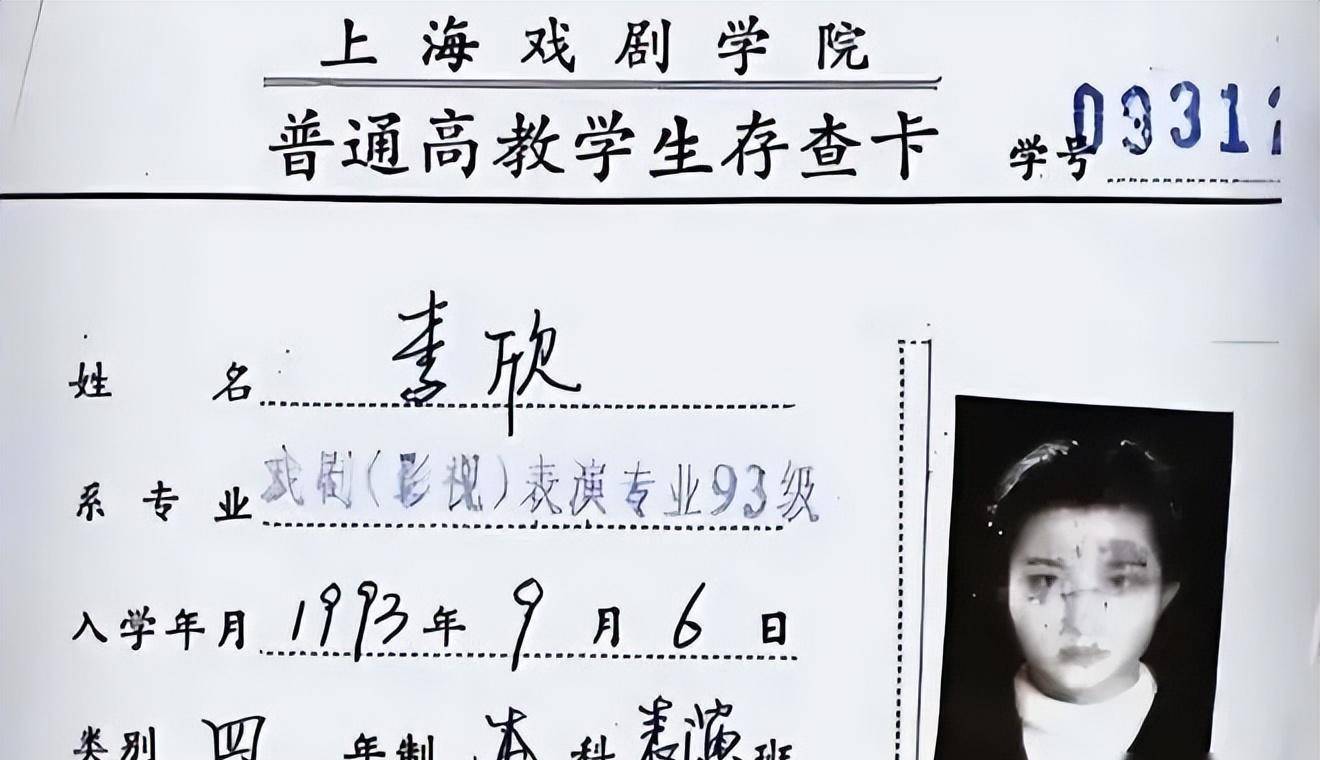 上海戏剧学院
普通高教学生存查卡
学号 0931
姓名 李欣
系专业 戏剧(影视)表演专业93级
入学年月 1993年9月6日
类别 四年制本科表演班